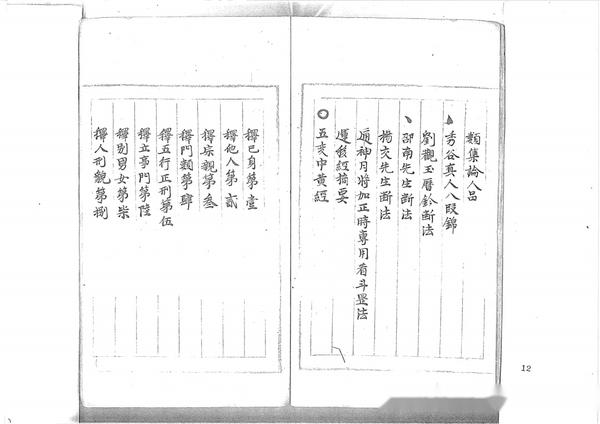 類集論人品
秀谷真人八段錦
劉觀玉曆鈐斷法
邵南先生斷法
楊交先生斷法
神月將加正時專用看斗罡法
經摘要
五變中黃經
釋已身第壹
釋他人第貳
釋宗親第叁
釋門類第肆
釋五行正刑第伍
釋立亭門第陸
釋別男女第柒
釋人形貌第捌
12